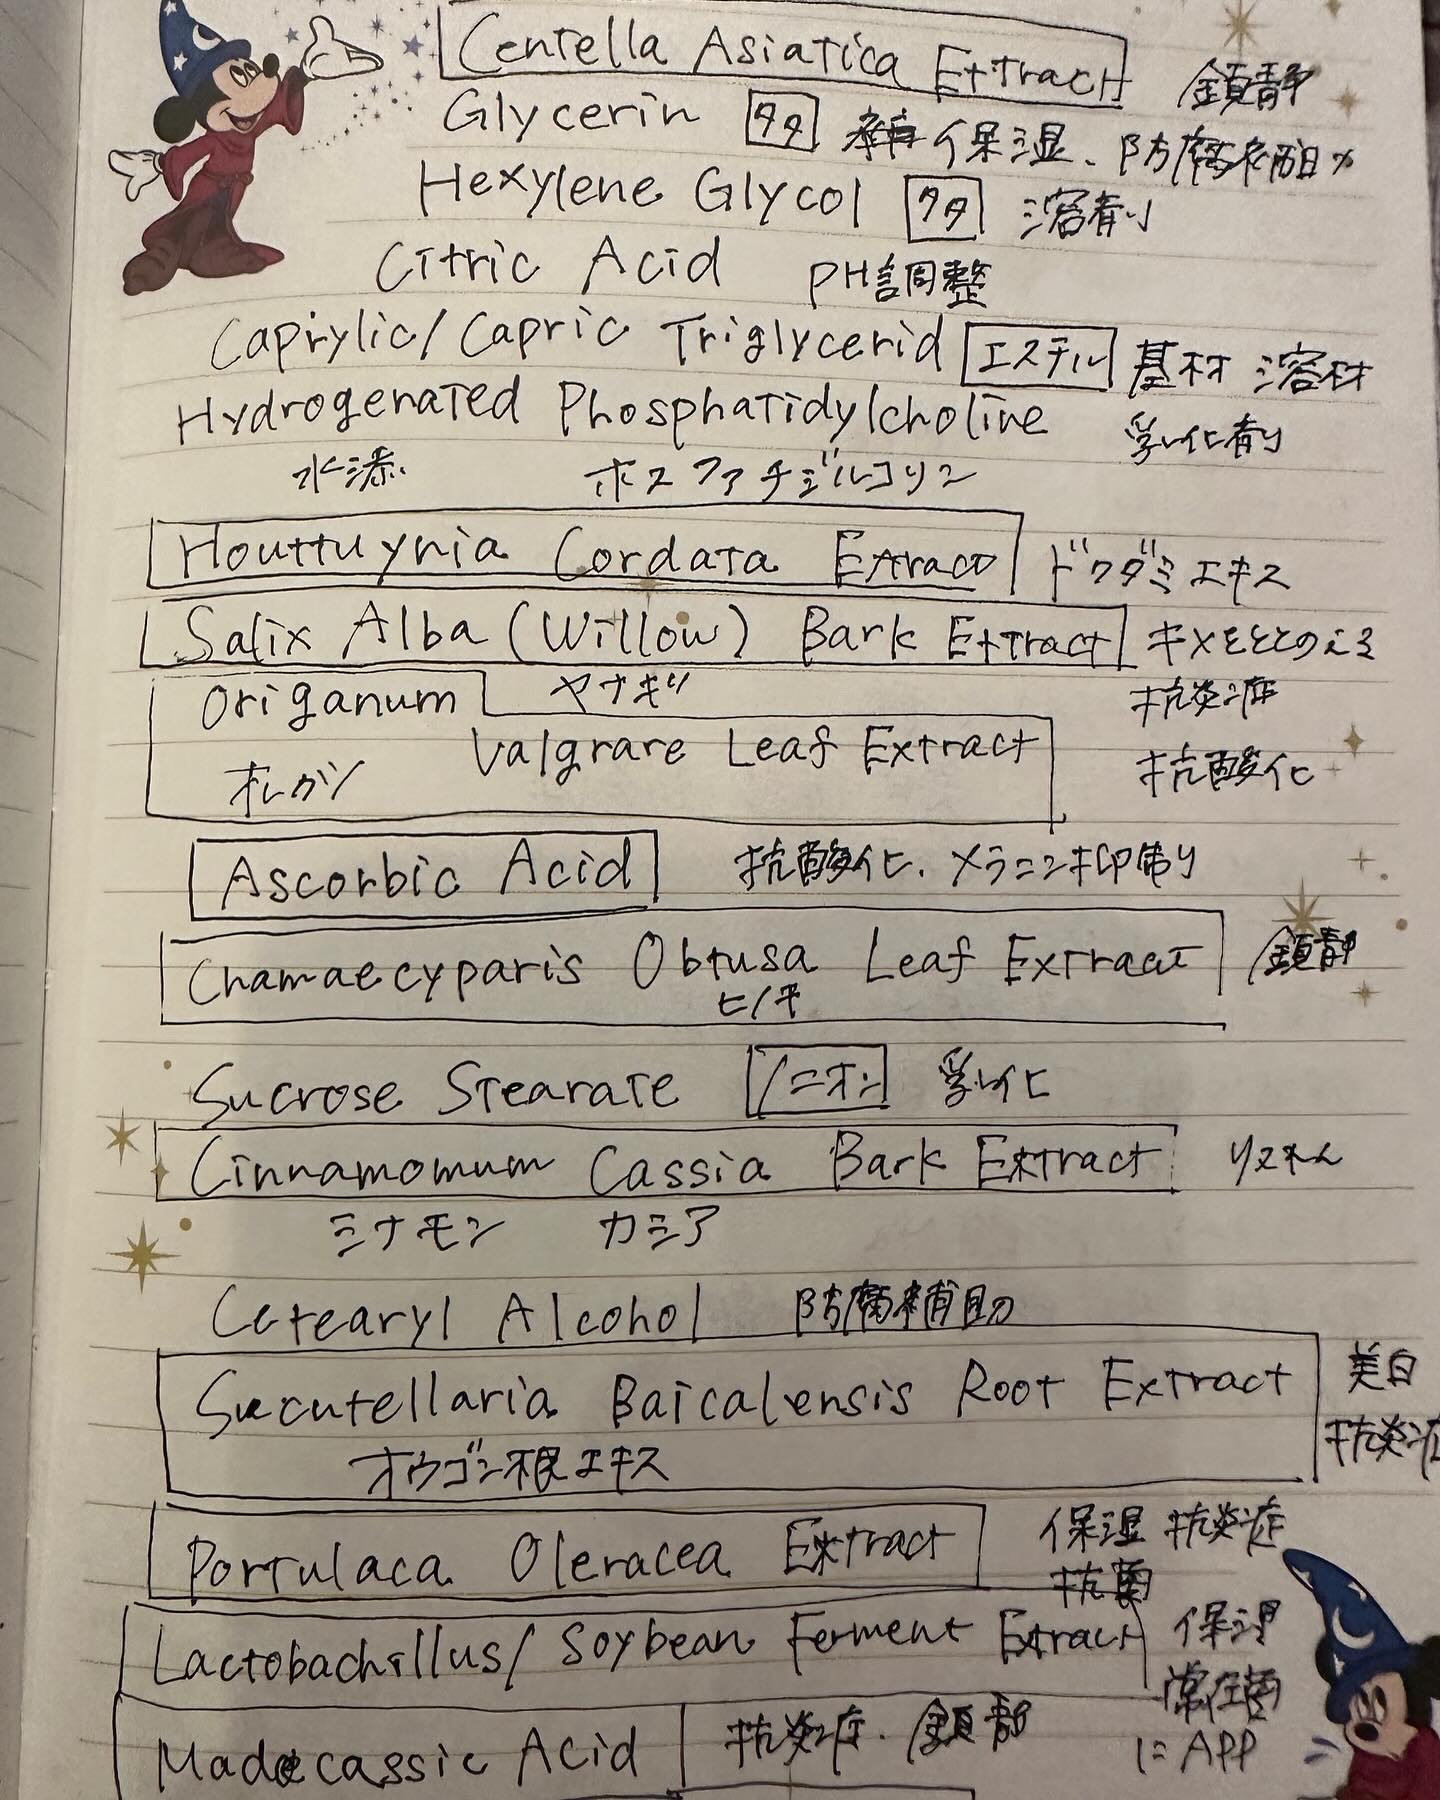 Centella Asiatica Extract 鎮静
Glycerin 多价 保湿、防腐補助
Hexylene Glycol 溶剤
Citric Acid PH調整
Caprylic/Capric Triglycerid エステル 基材 溶材
Hydrogenated Phosphatidylcholine 乳化剤
水添 ホスファチジルコリン
Houttuynia Cordata Extract ドクダミエキス
Salix Alba (Willow) Bark Extract キメをととのえる
Origanum ヤナギ 抗炎症
Valgrare Leaf Extract
オレガノ 抗酸化
Ascorbic Acid 抗酸化、メラニン抑制
Chamaecyparis Obtusa Leaf Extract 鎮静
ヒノキ
Sucrose Stearate ノニオン 乳化
Cinnamomum Cassia Bark Extract
シナモン カシア
Cetearyl Alcohol 防腐補助
Scutellaria Baicalensis Root Extract 美白
オウゴン根エキス 抗炎症
Portulaca Oleracea Extract 保湿 抗炎症
抗菌
Lactobachillus/Soybean Ferment Extract 保湿
常在菌
Madecassic Acid 抗炎症、鎮静
に APP